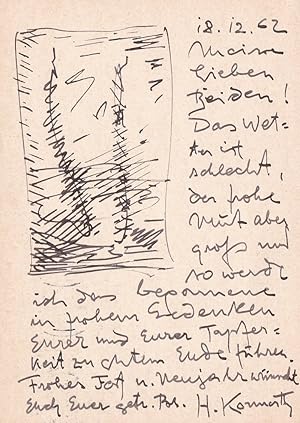 18.12.62
Meine
lieben
Beiden!
Das Wet-
ter ist
schlecht,
der frohe
Mut aber
groß und
so werde
ich das begonnene
in frohem Gedenken
Eurer und Eurer Tapfer-
keit zu gutem Ende führen.
Frohes Fest u. Neujahr wünscht
Euch Euer getr. H. Konnerth